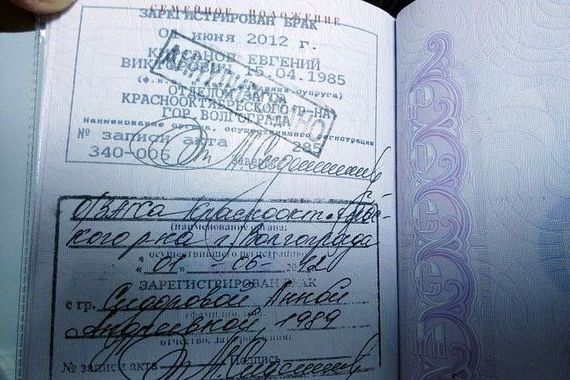 СЕМЕЙНОЕ ПОЛОЖЕНИЕ
ЗАРЕГИСТРИРОВАН БРАК
01 ИЮНЯ 2012 г.
ЕВГЕНИЙ
15.04.1985
ОТДЕЛОМ
КРАСНООКТЯБРЬСКОГО Р-НА
ГОР. ВОЛГОГРАДА
Наименование органа, осуществившего регистрацию
№ записи акта 285
340-006 Заверено
О/ЗАГСа Краснооктябрьс-
кого р-на г. Волгограда
(наименование органа:
осуществившего регистрацию)
« 01 » 06 2012
ЗАРЕГИСТРИРОВАН БРАК
с гр. Сидоровой Анной
Андреевной, 1989
отчество, дата рождения)
№ записи акта Подпись